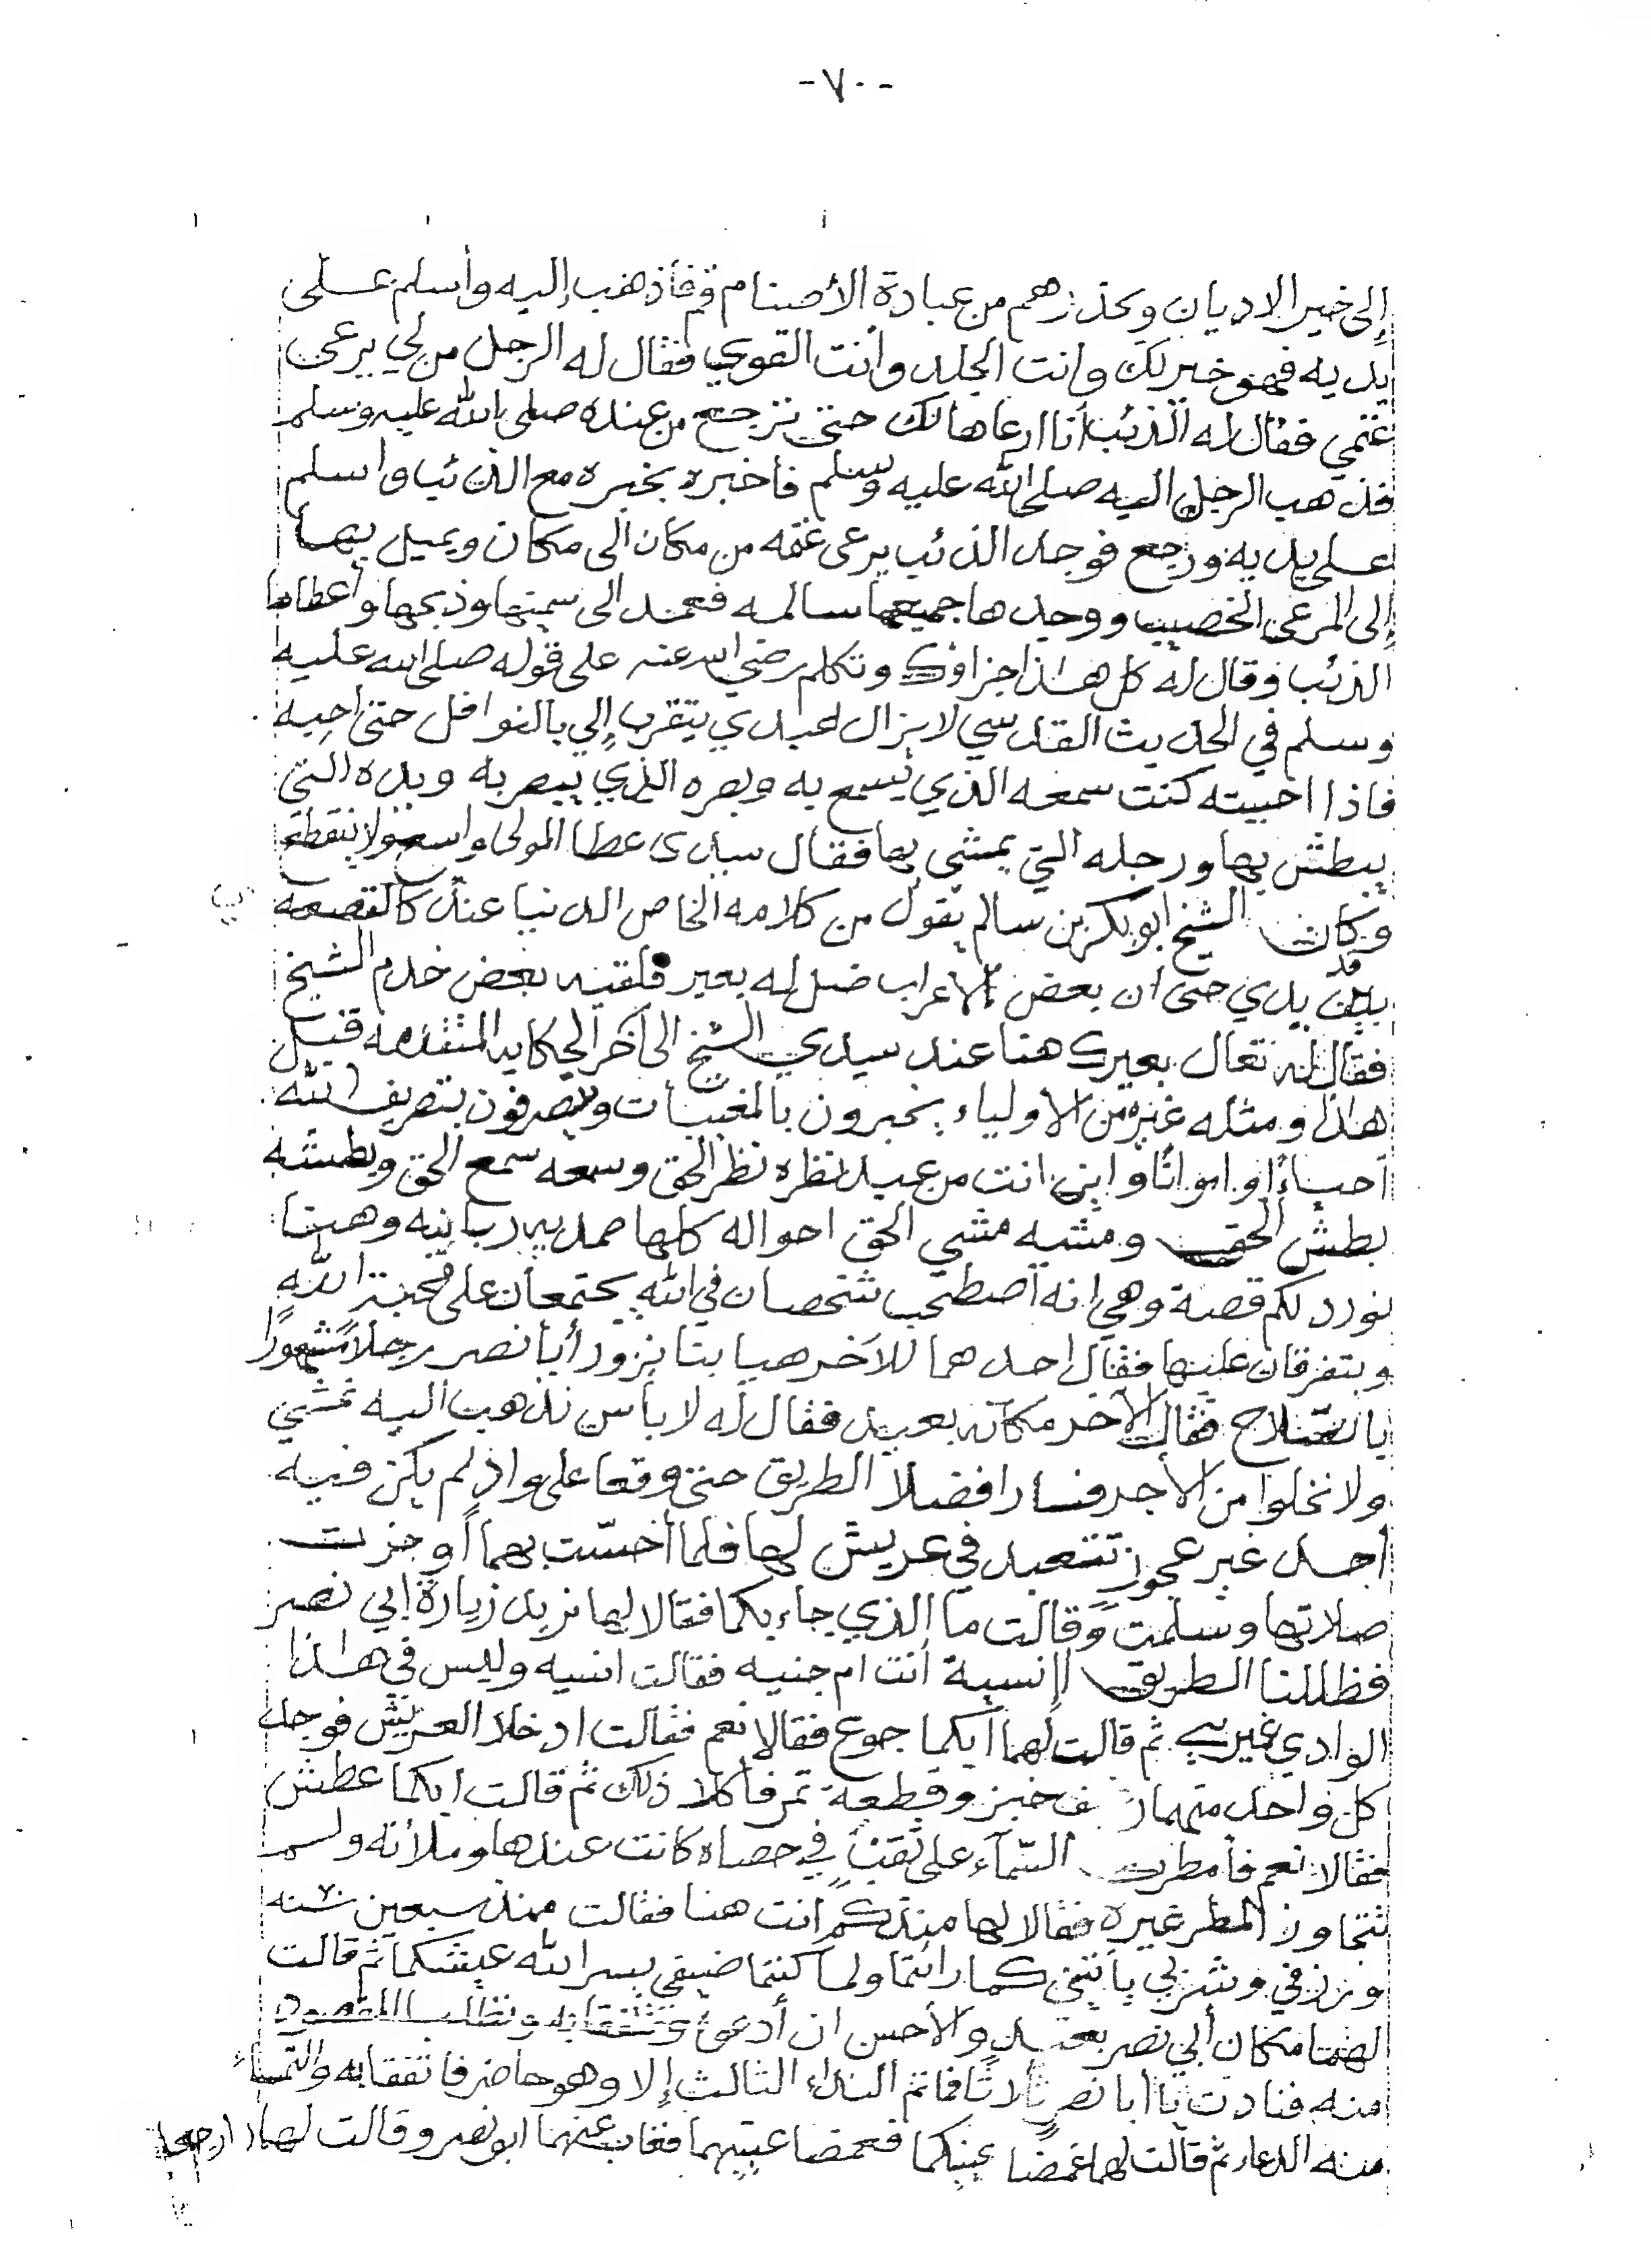 -٧٠-
إلى خير الاديان ويحذرهم من عبادة الأصنام قم فأذهب إليه وأسلم على
يديه فهو خير لك وانت الجلد وأنت القوي فقال له الرجل من لي يرعى
غنمي فقال له الذئب أنا ارعاها لك حتى ترجع من عنده صلى الله عليه وسلم
فذهب الرجل اليه صلى الله عليه وسلم فاخبره بخبره مع الذئب واسلم
على يديه ورجع فوجد الذئب يرعى غنمه من مكان الى مكان ويميل بها
إلى المرعى الخصيب ووجدها جميعها سالمه فعمد الى سمينها وذبحها وأعطاها
الذئب وقال له كل هذا جزاؤك وتكلم رضي الله عنه على قوله صلى الله عليه
وسلم في الحديث القدسي لا يزال عبدي يتقرب إلي بالنوافل حتى احبه
فاذا احببته كنت سمعه الذي يسمع به وبصره الذي يبصر به ويده التي
يبطش بها ورجله التي يمشي بها فقال سيدى عطا المولى واسع ولا ينقطع
وكان الشيخ ابوبكر بن سالم يقول من كلامه الخاص الدنيا عندي كالقصعه
بين يدي حتى ان بعض الاعراب ضل له بعير فلقيه بعض خدم الشيخ
فقال له تعال بعيرك هنا عند سيدي الشيخ الى آخر الحكايه المتقدمه قبل
هذا ومثله غيره من الاولياء يخبرون بالمغيبات ويتصرفون بتصريف الله
احياءً او امواتًا واين انت من عبيد نظره نظر الحق وسمعه سمع الحق وبطشه
بطش الحق ومشيه مشي الحق احواله كلها صمديه ربانيه وهنا
نورد لكم قصة وهي إنه أصطحب شخصان في الله يجتمعان على محبة الله
ويتفرقان عليها فقال احدهما للآخر هيا بنا نزور أبا نصر رجلاً مشهورًا
بالصلاح فقال الآخر مكانه بعيد فقال له لا بأس نذهب اليه نمشي
ولا نخلوا من الأجر فسارا فضلا الطريق حتى وقعا على واد لم يكن فيه
أحد غير عجوز تتعبد في عريش لها فلما أحسّت بهما أوجزت
صلاتها وسلمت وقالت ما الذي جاء بكما فقالا لها نريد زيارة ابي نصر
فظللنا الطريق إانسية أنت ام جنيه فقالت انسيه وليس في هذا
الوادي غيري ثم قالت لهما أبكما جوع فقالا نعم فقالت ادخلا العريش فوجد
كل واحد منهما خبز وقطعة تمر فأكلا ذلك ثم قالت ابكما عطش
فقالا نعم فأمطرت السّمآء على ثقبٍ في حصاه كانت عندها وملأته ولم
تتجاوز المطر غيره فقالا لها منذ كم أنت هنا فقالت منذ سبعين سنه
ورزقي وشربي يأتيني كما رأيتما ولما كنتما ضيفي يسر الله عيشكما ثم قالت
لهما مكان أبي نصر بعيد والأحسن ان أدعوه ونطلب المقصود
منه فنادت يا أبا نصر ثلاثًا فما تم النداء الثالث إلا وهو حاضر فاتفقا به والتمسا
منه الدعاء ثم قالت لهما غمضا عينيكما فغمضا عينيهما فغاب عنهما ابو نصر وقالت لهما ارجعا